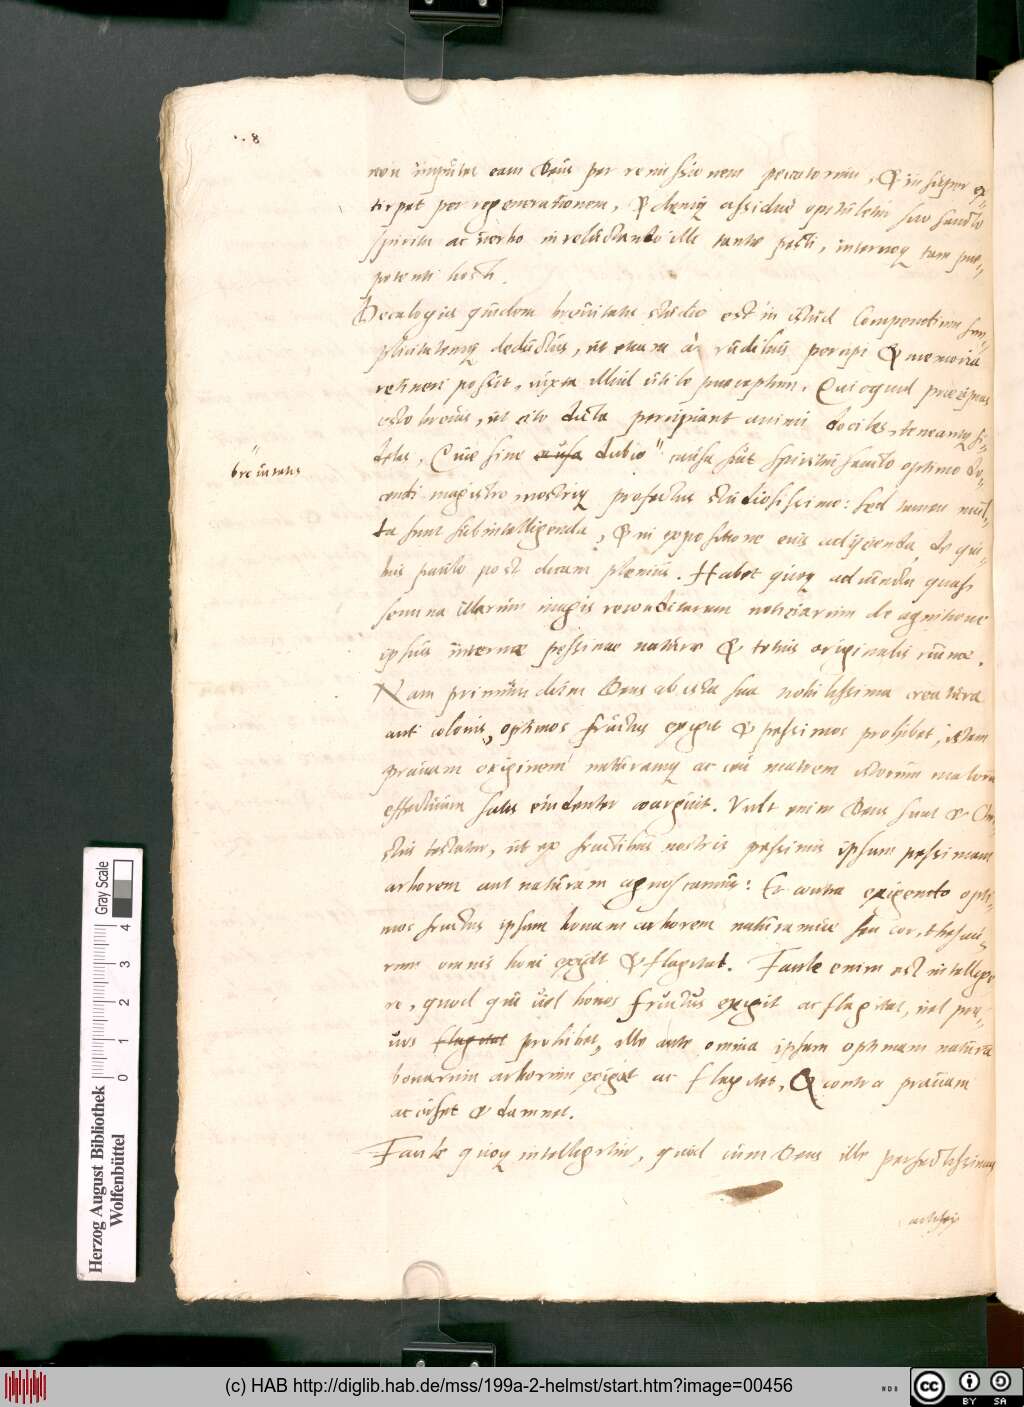 non imputet eam Deus per remissionem peccatorum, & insuper ex-
tirpet per regenerationem, & deniq assidue opituletur suo sancto
spiritu ac verbo in reluctando illi tantae pesti, internoq tam prae-
potenti hosti.
Decalogus quidem brevitatis studio est in istud Compendium sim-
plicitatemq deductus, ut etiam à rudibus percipi & memoria
retineri possit, iuxta illud utile praeceptum, Quicquid praecipies
esto brevis, ut cito dicta percipiant animi dociles, teneantq fi-
deles, Quae sine causa dubio " causa sūt spiritui sancto optimo do-
"
brevitatis
cendi magistro nostriq profectus studiosissimo: Sed tamen mul-
ta sunt subintelligenda, & in expositione eius adijcienda, de qui-
bus paulo post dicam plenius. Habet quoq adiuncta quasi
somna illarum magis reconditarum noticiarum de agnitione
ipsius internae pessimae naturae & totius originalis ruinae.
Nam primum dum Deus ab ista sua nobilissima creatura
aut colonis, optimos fructus exigit & pessimos prohibet, istam
pravam originem naturamq ac ceu matrem istorum malorū
effectuum satis evidenter coarguit. Vult enim Deus sicut & Chri-
stus testatur, ut ex fructibus nostris pessimis ipsam pessimam
arborem aut naturam agnoscamus: Et contra exigendo opti-
mos fructus ipsam bonam arborem naturamue seu cor, thesau-
rum omnis boni exigit & flagitat. Facile enim est intellige-
re, quod qui vel bonos fructus exigit ac flagitat, vel pra-
vos flagitat prohibet, ille ante omnia ipsam optimam naturā
bonarum arborum exigat ac flagitet, & contra pravam
accuset & damnet.
Facile quoq intelligitur, quod cum Deus ille perfectissimus
(c) HAB http://diglib.hab.de/mss/199a-2-helmst/start.htm?image=00456
Herzog August Bibliothek
Wolfenbüttel
0 1 2 3 4
Gray Scale
cc BY SA